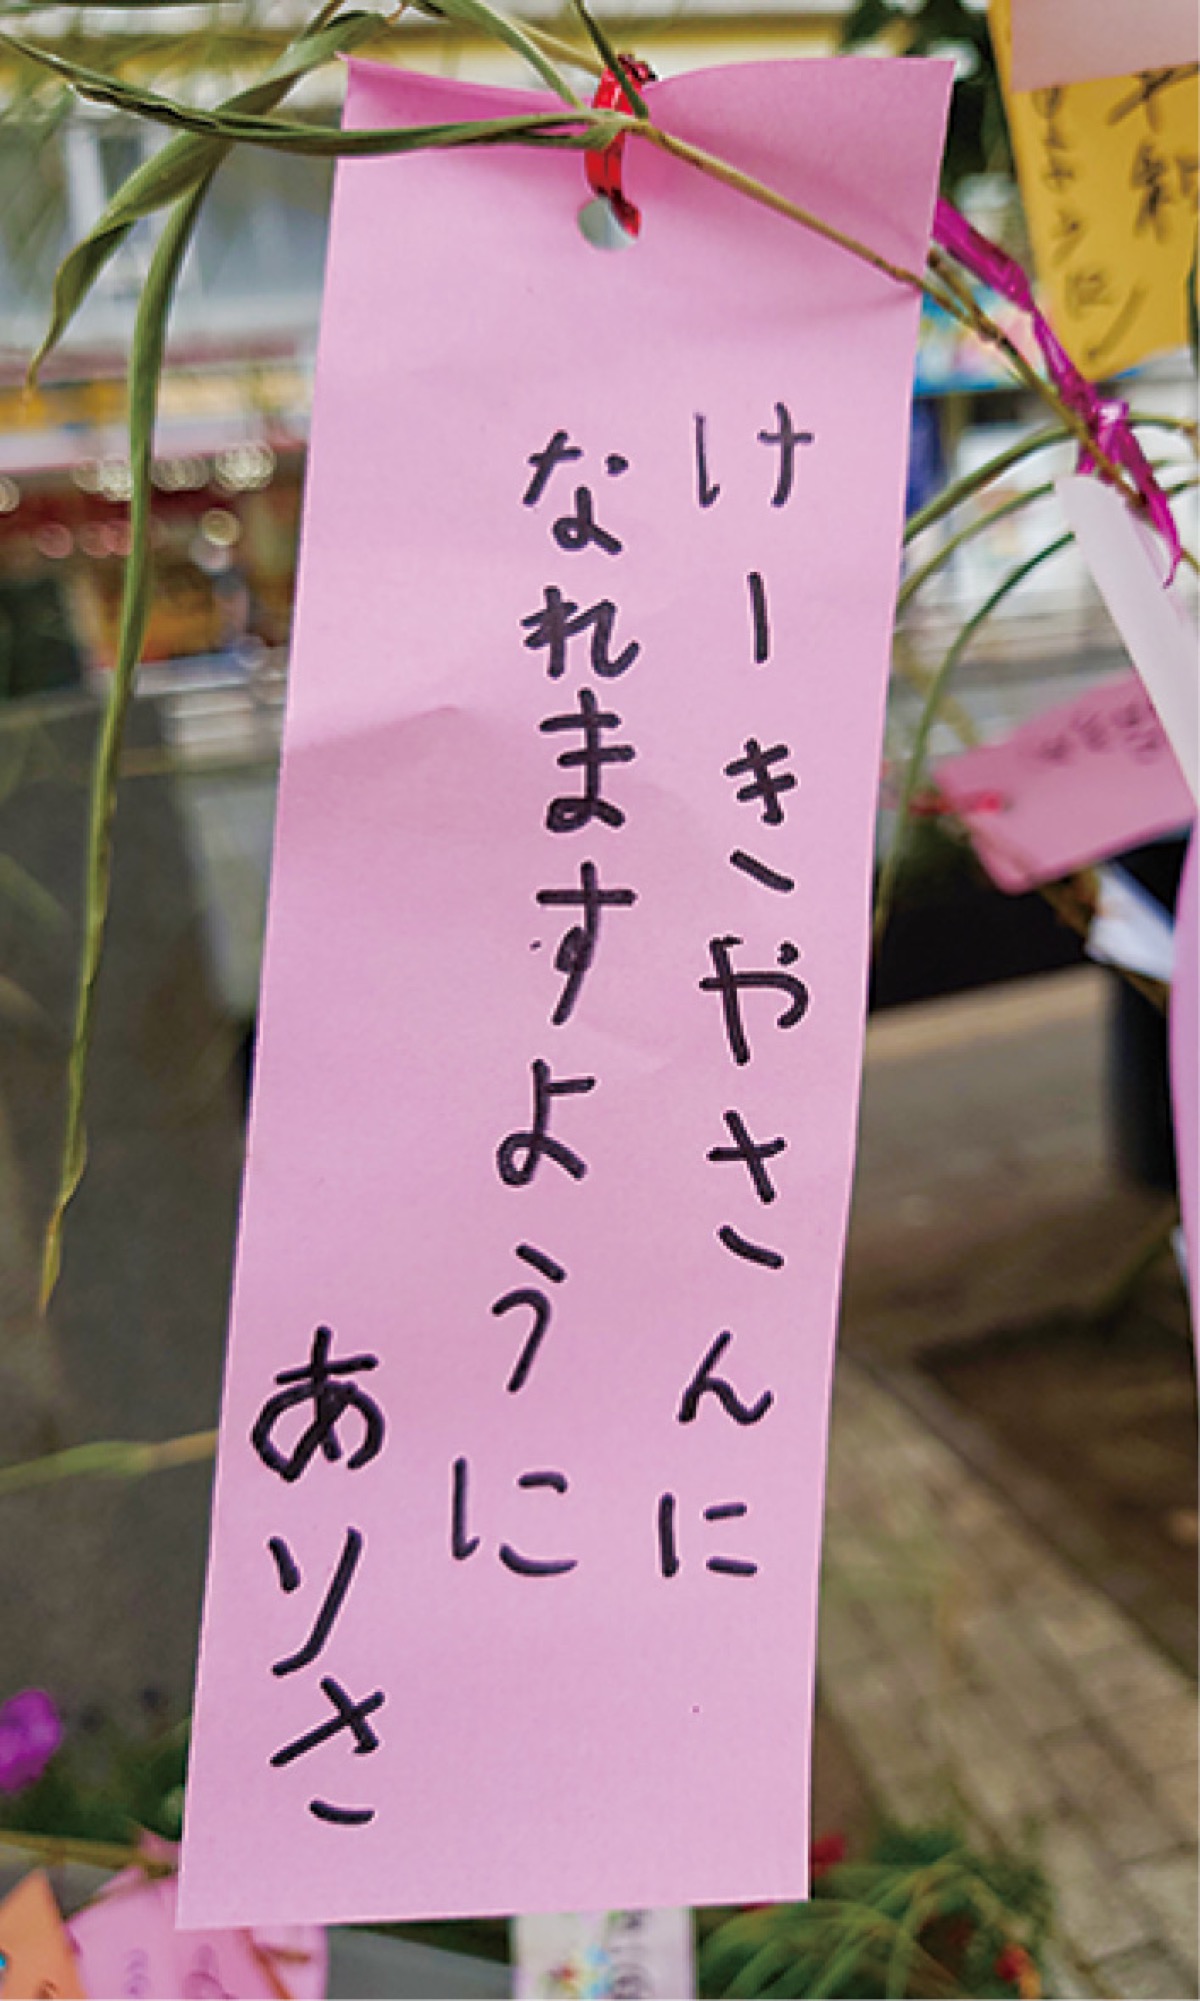 けーきやさんに
なれますように
ありさ